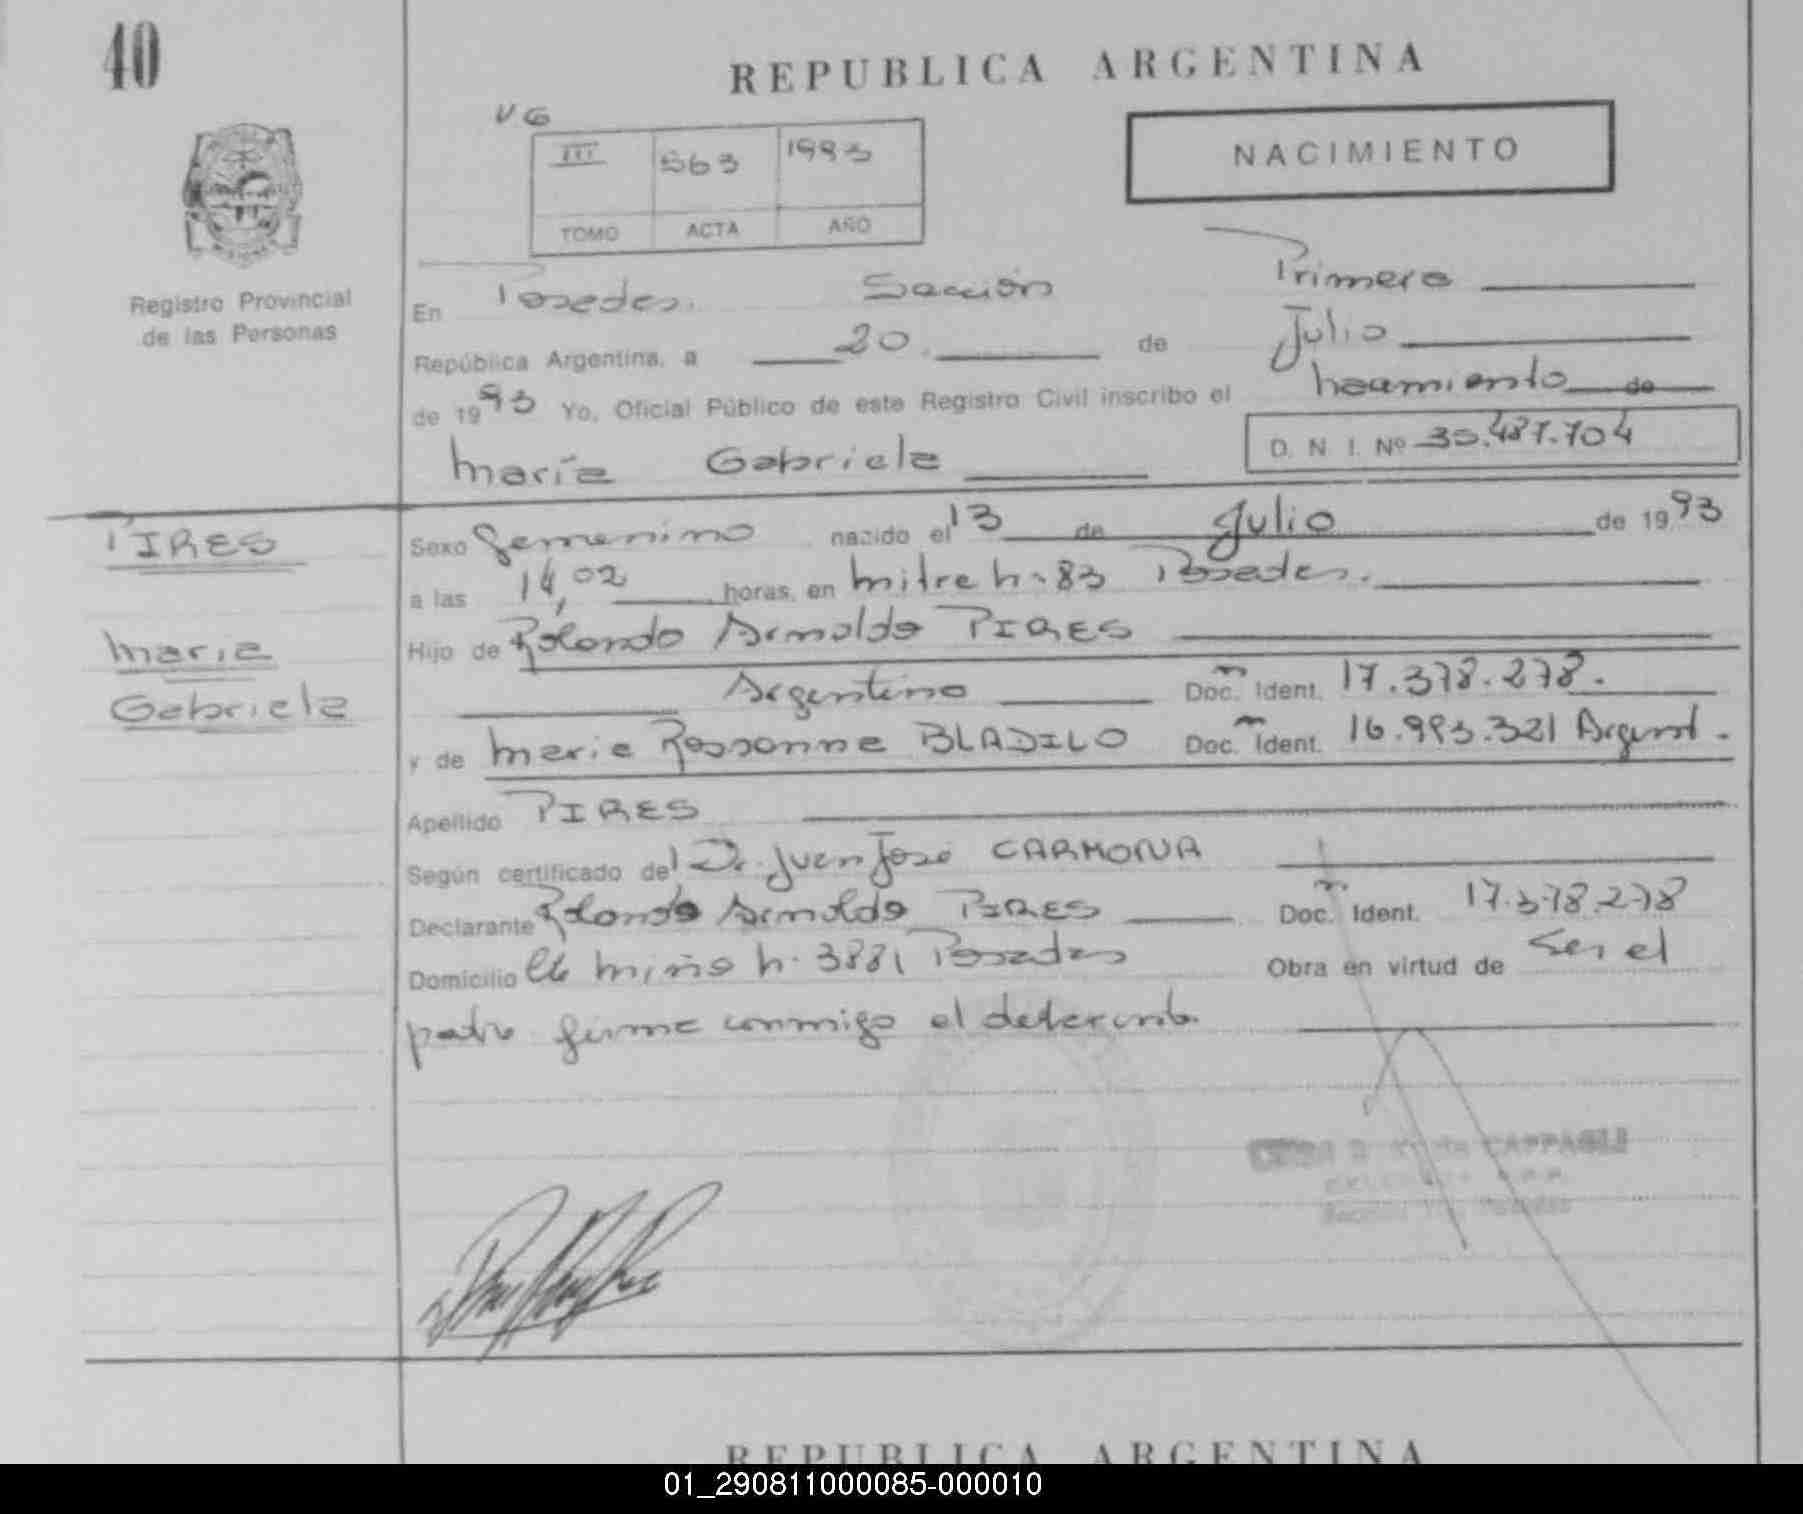 40
REPUBLICA ARGENTINA
NACIMIENTO
VG
III 563 1993
TOMO ACTA AÑO
Registro Provincial
de las Personas
En Posadas. Sección Primera
República Argentina, a 20. de Julio
de 1993 Yo, Oficial Público de este Registro Civil inscribo el nacimiento de
María Gabriela D. N. I. Nº 35.487.704
PIRES
Maria
Gabriela
Sexo femenino nacido el 13 de Julio de 1993
a las 14,02 horas, en Mitre N- 83 Posadas.
Hijo de Rolando Arnoldo PIRES
Argentino Doc. Ident. 17.378.278.
y de Maria Rossanna BLADILO Doc. Ident. 16.993.321 Argent.
Apellido PIRES
Según certificado del Dr. Juan José CARMONA
Declarante Rolando Arnoldo PIRES Doc. Ident. 17.378.278
Domicilio Miño N- 3881 Posadas Obra en virtud de ser el
padre firma conmigo el declarante
CAPPAGLI
REPUBLICA ARGENTINA
01_290811000085-000010